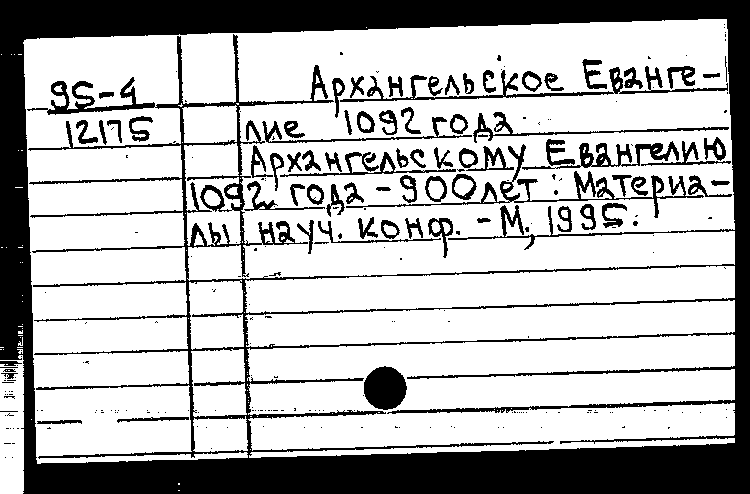 95-4
12175
Архангельское Еванге-
лие 1092 года
Архангельскому Евангелию
1092 года - 900 лет : Материа-
лы науч. конф. - М., 1995.